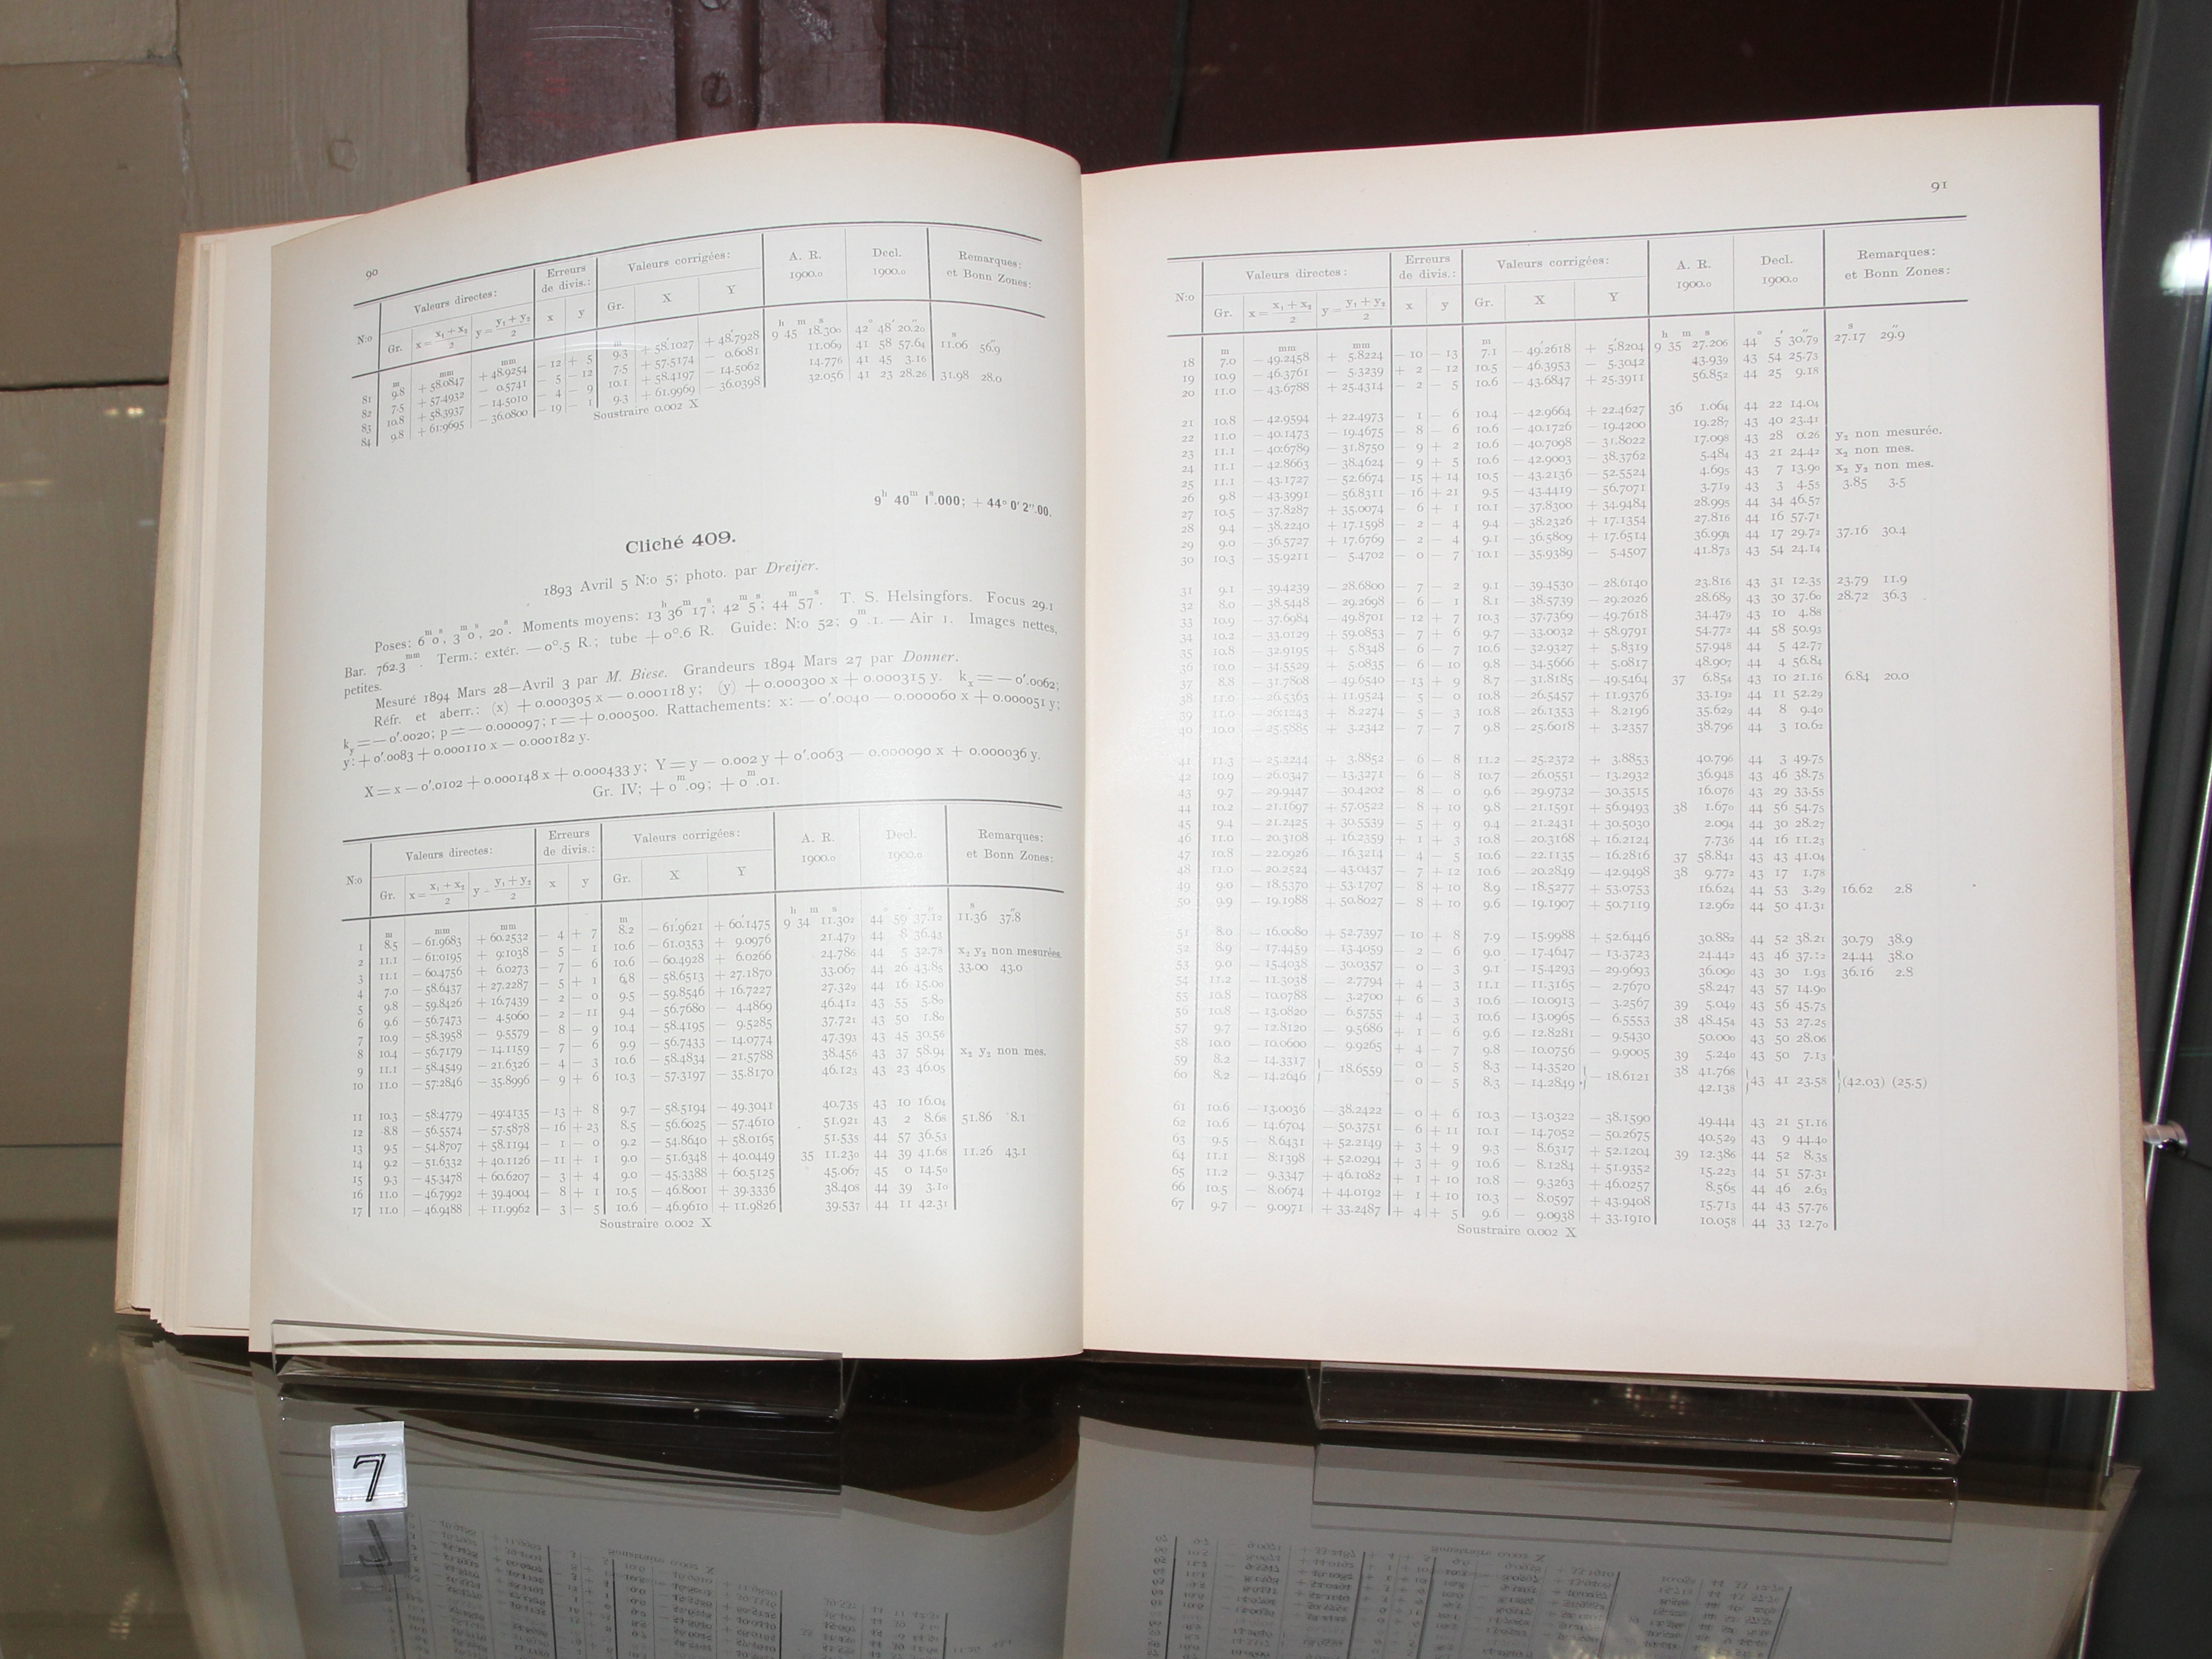 90
N:o Valeurs directes: Erreurs de divis.: Valeurs corrigées: A. R. 1900.0 Decl. 1900.0 Remarques: et Bonn Zones:
Gr. x = x₁ + x₂ / 2 y = y₁ + y₂ / 2 x y Gr. X Y
81 9.8 + 58.0847 + 48.9254 — 12 + 5 9.3 + 58.1027 + 48.7928 9 45 18.300 42 48 20.20
82 7.5 + 57.4932 — 0.5741 — 5 — 12 7.5 + 57.5174 — 0.6081 11.069 41 58 57.64 11.06 56.9
83 10.8 + 58.3937 — 14.5010 — 4 — 9 10.1 + 58.4197 — 14.5062 14.776 41 45 3.16
84 9.8 + 61.9695 — 36.0800 — 19 — 1 9.3 + 61.9969 — 36.0398 32.056 41 23 28.26 31.98 28.0
Soustraire 0.002 X
9h 40m 1s.000; + 44° 0′ 2″.00.
Cliché 409.
1893 Avril 5 N:o 5; photo. par Dreijer.
Poses: 6m 0s, 3m 0s, 20s. Moments moyens: 13h 36m 17s; 42m 5s; 44m 57s. T. S. Helsingfors. Focus 29.1
Bar. 762.3mm. Term.: extér. — 0°.5 R.; tube + 0°.6 R. Guide: N:o 52; 9m.1. — Air 1. Images nettes,
petites.
Mesuré 1894 Mars 28—Avril 3 par M. Biese. Grandeurs 1894 Mars 27 par Donner.
Réfr. et aberr.: (x) + 0.000305 x — 0.000118 y; (y) + 0.000300 x + 0.000315 y. kx = — 0′.0062;
ky = — 0′.0020; p = — 0.000097; r = + 0.000500. Rattachements: x: — 0′.0040 — 0.000060 x + 0.000051 y;
y: + 0′.0083 + 0.000110 x — 0.000182 y.
X = x — 0′.0102 + 0.000148 x + 0.000433 y; Y = y — 0.002 y + 0′.0063 — 0.000090 x + 0.000036 y.
Gr. IV; + 0m.09; + 0m.01.
N:o Valeurs directes: Erreurs de divis.: Valeurs corrigées: A. R. 1900.0 Decl. 1900.0 Remarques: et Bonn Zones:
Gr. x = x₁ + x₂ / 2 y = y₁ + y₂ / 2 x y Gr. X Y
1 8.5 — 61.9683 + 60.2532 — 4 + 7 8.2 — 61.9621 + 60.1475 9 34 11.302 44 59 37.12 11.36 37.8
2 11.1 — 61.0195 + 9.1038 — 5 — 1 10.6 — 61.0353 + 9.0976 21.479 44 8 36.43
3 11.1 — 60.4756 + 6.0273 — 7 — 6 10.6 — 60.4928 + 6.0266 24.786 44 5 32.78 x₂ y₂ non mesurées.
4 7.0 — 58.6437 + 27.2287 — 5 + 1 6.8 — 58.6513 + 27.1870 33.067 44 26 43.85 33.00 43.0
5 9.8 — 59.8426 + 16.7439 — 2 — 0 9.5 — 59.8546 + 16.7227 27.329 44 16 15.00
6 9.6 — 56.7473 — 4.5060 — 2 — 11 9.4 — 56.7680 — 4.4869 46.412 43 55 5.80
7 10.9 — 58.3958 — 9.5579 — 8 — 9 10.4 — 58.4195 — 9.5285 37.721 43 50 1.80
8 10.4 — 56.7179 — 14.1159 — 7 — 6 9.9 — 56.7433 — 14.0774 47.393 43 45 30.56
9 11.1 — 58.4549 — 21.6326 — 4 — 3 10.6 — 58.4834 — 21.5788 38.456 43 37 58.94 x₂ y₂ non mes.
10 11.0 — 57.2846 — 35.8996 — 9 + 6 10.3 — 57.3197 — 35.8170 46.123 43 23 46.05
11 10.3 — 58.4779 — 49.4135 — 13 + 8 9.7 — 58.5194 — 49.3041 40.735 43 10 16.04
12 8.8 — 56.5574 — 57.5878 — 16 + 23 8.5 — 56.6025 — 57.4610 51.921 43 2 8.68 51.86 8.1
13 9.5 — 54.8707 + 58.1194 — 1 — 0 9.2 — 54.8640 + 58.0165 51.535 44 57 36.53
14 9.2 — 51.6332 + 40.1126 — 11 + 1 9.0 — 51.6348 + 40.0449 35 11.230 44 39 41.68 11.26 43.1
15 9.3 — 45.3478 + 60.6207 — 3 + 4 9.0 — 45.3388 + 60.5125 45.067 45 0 14.50
16 11.0 — 46.7992 + 39.4004 — 8 + 1 10.5 — 46.8001 + 39.3336 38.408 44 39 3.10
17 11.0 — 46.9488 + 11.9962 — 3 — 5 10.6 — 46.9610 + 11.9826 39.537 44 11 42.31
Soustraire 0.002 X
91
N:o Valeurs directes: Erreurs de divis.: Valeurs corrigées: A. R. 1900.0 Decl. 1900.0 Remarques: et Bonn Zones:
Gr. x = x₁ + x₂ / 2 y = y₁ + y₂ / 2 x y Gr. X Y
18 7.0 — 49.2458 + 5.8224 — 10 — 13 7.1 — 49.2618 + 5.8204 9 35 27.206 44 5 30.79 27.17 29.9
19 10.9 — 46.3761 — 5.3239 + 2 — 12 10.5 — 46.3953 — 5.3042 43.939 43 54 25.73
20 11.0 — 43.6788 + 25.4314 — 2 — 5 10.6 — 43.6847 + 25.3911 56.852 44 25 9.18
21 10.8 — 42.9594 + 22.4973 — 1 — 6 10.4 — 42.9664 + 22.4627 36 1.064 44 22 14.04
22 11.0 — 40.1473 — 19.4675 — 8 — 6 10.6 — 40.1726 — 19.4200 19.287 43 40 23.41
23 11.1 — 40.6789 — 31.8750 — 9 + 2 10.6 — 40.7098 — 31.8022 17.098 43 28 0.26 y₂ non mesurée.
24 11.1 — 42.8663 — 38.4624 — 9 + 5 10.6 — 42.9003 — 38.3762 5.484 43 21 24.42 x₂ non mes.
25 11.1 — 43.1727 — 52.6674 — 15 + 14 10.5 — 43.2136 — 52.5524 4.695 43 7 13.90 x₂ y₂ non mes.
26 9.8 — 43.3991 — 56.8311 — 16 + 21 9.5 — 43.4419 — 56.7071 3.719 43 3 4.55 3.85 3.5
27 10.5 — 37.8287 + 35.0074 — 6 + 1 10.1 — 37.8300 + 34.9484 28.995 44 34 46.57
28 9.4 — 38.2240 + 17.1598 — 2 — 4 9.4 — 38.2326 + 17.1354 27.816 44 16 57.71
29 9.0 — 36.5727 + 17.6769 — 2 — 4 9.1 — 36.5809 + 17.6514 36.991 44 17 29.72 37.16 30.4
30 10.3 — 35.9211 — 5.4702 — 0 — 7 10.1 — 35.9389 — 5.4507 41.873 43 54 24.14
31 9.1 — 39.4239 — 28.6800 — 7 — 2 9.1 — 39.4530 — 28.6140 23.816 43 31 12.35 23.79 11.9
32 8.0 — 38.5448 — 29.2698 — 6 — 1 8.1 — 38.5739 — 29.2026 28.689 43 30 37.60 28.72 36.3
33 10.9 — 37.6984 — 49.8701 — 12 + 7 10.3 — 37.7369 — 49.7618 34.479 43 10 4.88
34 10.2 — 33.0129 + 59.0853 — 7 + 6 9.7 — 33.0032 + 58.9791 54.772 44 58 50.93
35 10.8 — 32.9195 + 5.8348 — 6 — 7 10.6 — 32.9327 + 5.8319 57.948 44 5 42.77
36 10.0 — 34.5529 + 5.0835 — 6 — 10 9.8 — 34.5666 + 5.0817 48.907 44 4 56.84
37 8.8 — 31.7808 — 49.6540 — 13 + 9 8.7 — 31.8185 — 49.5464 37 6.854 43 10 21.16 6.84 20.0
38 11.0 — 26.5363 + 11.9524 — 5 — 0 10.8 — 26.5457 + 11.9376 33.192 44 11 52.29
39 11.0 — 26.1243 + 8.2274 — 5 — 3 10.8 — 26.1353 + 8.2196 35.629 44 8 9.40
40 10.0 — 25.5885 + 3.2342 — 7 — 7 9.8 — 25.6018 + 3.2357 38.796 44 3 10.62
41 11.3 — 25.2244 + 3.8852 — 6 — 8 11.2 — 25.2372 + 3.8853 40.796 44 3 49.75
42 10.9 — 26.0347 — 13.3271 — 6 — 8 10.7 — 26.0551 — 13.2932 36.948 43 46 38.75
43 9.7 — 29.9447 — 30.4202 — 8 — 0 9.6 — 29.9732 — 30.3515 16.076 43 29 33.55
44 10.2 — 21.1697 + 57.0522 — 8 + 10 9.8 — 21.1591 + 56.9493 38 1.670 44 56 54.75
45 9.4 — 21.2425 + 30.5539 — 5 + 9 9.4 — 21.2431 + 30.5030 2.094 44 30 28.27
46 11.0 — 20.3108 + 16.2359 + 1 + 3 10.8 — 20.3168 + 16.2124 7.736 44 16 11.23
47 10.8 — 22.0926 — 16.3214 — 4 — 5 10.6 — 22.1135 — 16.2816 37 58.841 43 43 41.04
48 11.0 — 20.2524 — 43.0437 — 7 + 12 10.6 — 20.2849 — 42.9498 38 9.772 43 17 1.78
49 9.0 — 18.5370 + 53.1707 — 8 + 10 8.9 — 18.5277 + 53.0753 16.624 44 53 3.29 16.62 2.8
50 9.9 — 19.1988 + 50.8027 — 8 + 10 9.6 — 19.1907 + 50.7119 12.962 44 50 41.31
51 8.0 — 16.0080 + 52.7397 — 10 + 8 7.9 — 15.9988 + 52.6446 30.882 44 52 38.21 30.79 38.9
52 8.9 — 17.4459 — 13.4059 — 2 — 6 9.0 — 17.4647 — 13.3723 24.442 43 46 37.12 24.44 38.0
53 9.0 — 15.4038 — 30.0357 — 0 — 3 9.1 — 15.4293 — 29.9693 36.090 43 30 1.93 36.16 2.8
54 11.2 — 11.3038 — 2.7794 + 4 — 3 11.1 — 11.3165 — 2.7670 58.247 43 57 14.90
55 10.8 — 10.0788 — 3.2700 + 6 — 3 10.6 — 10.0913 — 3.2567 39 5.049 43 56 45.75
56 10.8 — 13.0820 — 6.5755 + 4 — 3 10.6 — 13.0965 — 6.5553 38 48.454 43 53 27.25
57 9.7 — 12.8120 — 9.5686 + 1 — 6 9.6 — 12.8281 — 9.5430 50.000 43 50 28.06
58 10.0 — 10.0600 — 9.9265 + 4 — 7 9.8 — 10.0756 — 9.9005 39 5.240 43 50 7.13
59 8.2 — 14.3317 — 18.6559 — 0 — 5 8.3 — 14.3520 — 18.6121 38 41.768 43 41 23.58 (42.03) (25.5)
60 8.2 — 14.2646 — 0 — 5 8.3 — 14.2849 42.138
61 10.6 — 13.0036 — 38.2422 — 0 + 6 10.3 — 13.0322 — 38.1590 49.444 43 21 51.16
62 10.6 — 14.6704 — 50.3751 — 6 + 11 10.1 — 14.7052 — 50.2675 40.529 43 9 44.40
63 9.5 — 8.6431 + 52.2149 + 3 + 9 9.3 — 8.6317 + 52.1204 39 12.386 44 52 8.35
64 11.1 — 8.1398 + 52.0294 + 3 + 9 10.6 — 8.1284 + 51.9352 15.223 44 51 57.31
65 11.2 — 9.3347 + 46.1082 + 1 + 10 10.8 — 9.3263 + 46.0257 8.565 44 46 2.63
66 10.5 — 8.0674 + 44.0192 + 1 + 10 10.3 — 8.0597 + 43.9408 15.713 44 43 57.76
67 9.7 — 9.0971 + 33.2487 + 4 + 5 9.6 — 9.0938 + 33.1910 10.058 44 33 12.70
Soustraire 0.002 X
7